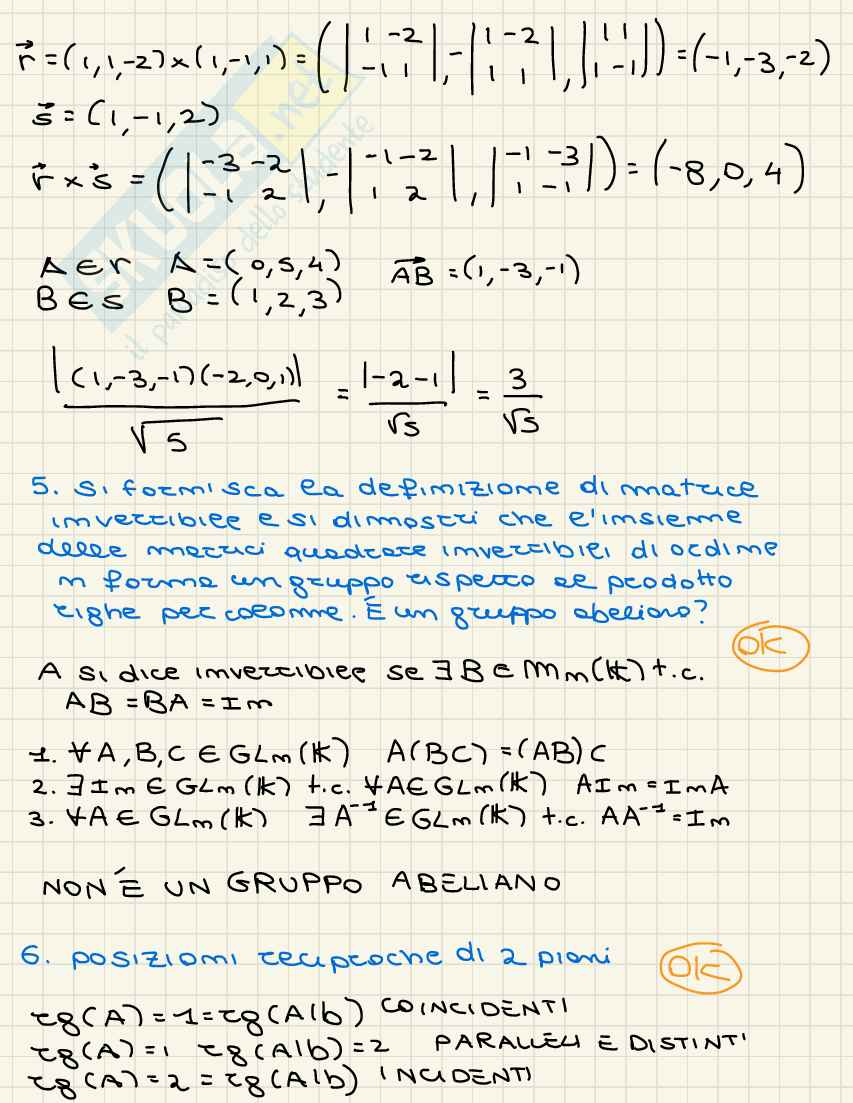 r⃗ = (1,1,-2) × (1,-1,1) = ( | 1 -2 ; -1 1 | , - | 1 -2 ; 1 1 | , | 1 1 ; 1 -1 | ) = (-1,-3,-2)
s⃗ = (1,-1,2)
r⃗ × s⃗ = ( | -3 -2 ; -1 2 | , - | -1 -2 ; 1 2 | , | -1 -3 ; 1 -1 | ) = (-8,0,4)
A ∈ r A = (0,5,4) AB⃗ = (1,-3,-1)
B ∈ s B = (1,2,3)
|(1,-3,-1)(-2,0,1)| / √5 = |-2-1| / √5 = 3 / √5
5. Si fornisca la definizione di matrice
invertibile e si dimostri che l'insieme
delle matrici quadrate invertibili di ordine
n forma un gruppo rispetto al prodotto
righe per colonne. È un gruppo abeliano?
OK
A si dice invertibile se ∃ B ∈ Mn(K) t.c.
AB = BA = In
1. ∀A,B,C ∈ GLn(K) A(BC) = (AB)C
2. ∃ In ∈ GLn(K) t.c. ∀A ∈ GLn(K) AIn = InA
3. ∀A ∈ GLn(K) ∃ A⁻¹ ∈ GLn(K) t.c. AA⁻¹ = In
NON È UN GRUPPO ABELIANO
6. posizioni reciproche di 2 piani
OK
rg(A) = 1 = rg(A|b) COINCIDENTI
rg(A) = 1 rg(A|b) = 2 PARALLELI E DISTINTI
rg(A) = 2 = rg(A|b) INCIDENTI
SKUOLA.net
il paradiso dello studente